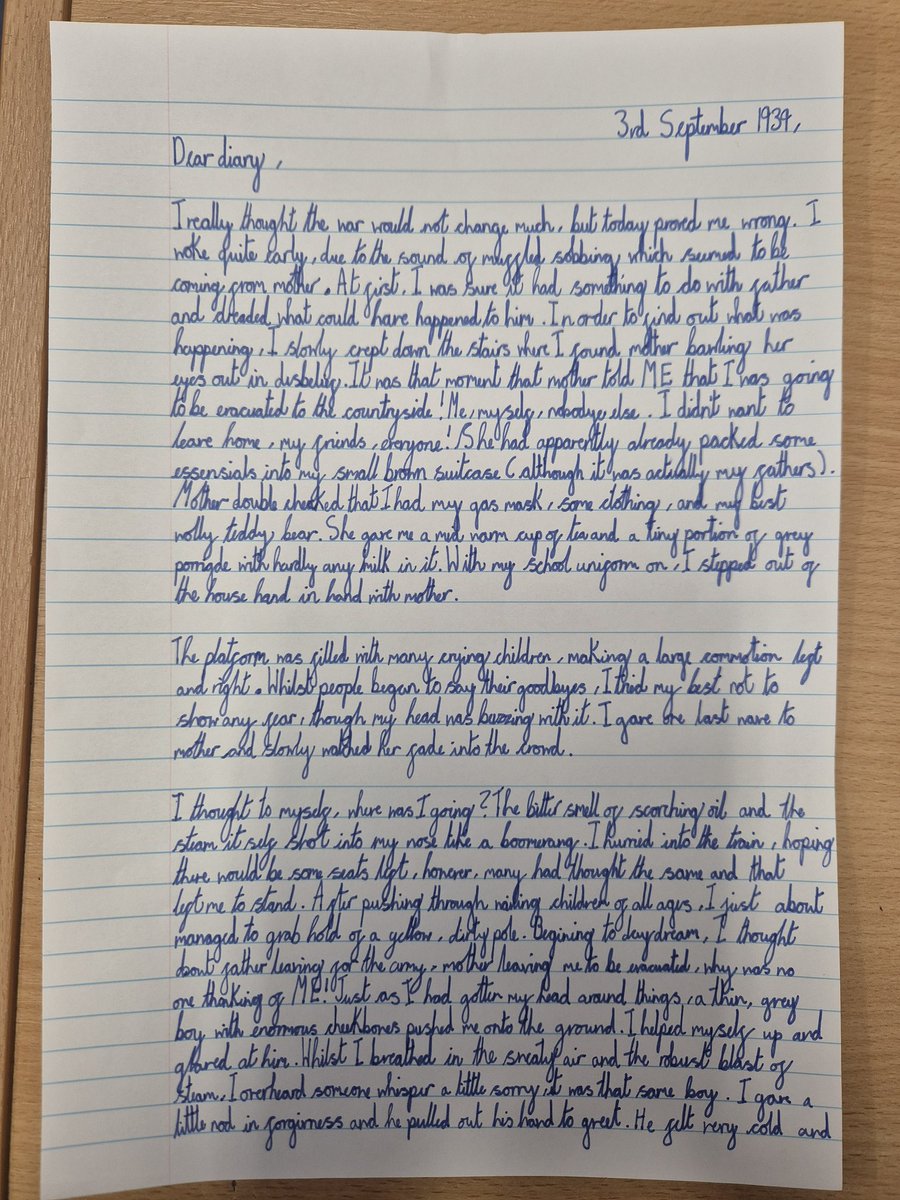 3rd September 1939,
Dear diary,
I really thought the war would not change much, but today proved me wrong. I
woke quite early, due to the sound of muffled sobbing which seemed to be
coming from mother. At first, I was sure it had something to do with father
and dreaded what could have happened to him. In order to find out what was
happening, I slowly crept down the stairs where I found mother bawling her
eyes out in disbelief. It was that moment that mother told ME that I was going
to be evacuated to the countryside! Me, myself, nobody else. I didn't want to
leave home, my friends, everyone! She had apparently already packed some
essensials into my small brown suitcase (although it was actually my fathers).
Mother double checked that I had my gas mask, some clothing, and my best
wolly teddy bear. She gave me a mid warm cup of tea and a tiny portion of grey
porrigde with hardly any milk in it. With my school uniform on, I stepped out of
the house hand in hand with mother.
The platform was filled with many crying children, making a large commotion left
and right. Whilst people began to say their goodbyes, I tried my best not to
show any fear, though my head was buzzing with it. I gave one last wave to
mother and slowly watched her fade into the crowd.
I thought to myself, where was I going? The bitter smell of scorching oil and the
steam it self shot into my nose like a boomerang. I hurried into the train, hoping
there would be some seats left, however, many had thought the same and that
left me to stand. After pushing through wailing children of all ages, I just about
managed to grab hold of a yellow, dirty pole. Begining to daydream, I thought
about father leaving for the army, mother leaving me to be evacuated, why was no
one thinking of ME! Just as I had gotten my head around things, a thin, grey
boy with enormous cheekbones pushed me onto the ground. I helped myself up and
glared at him. Whilst I breathed in the sweaty air and the robust blast of
steam, I overheard someone whisper a little sorry, it was that same boy. I gave a
little nod in forgivness and he pulled out his hand to greet. He felt very cold and